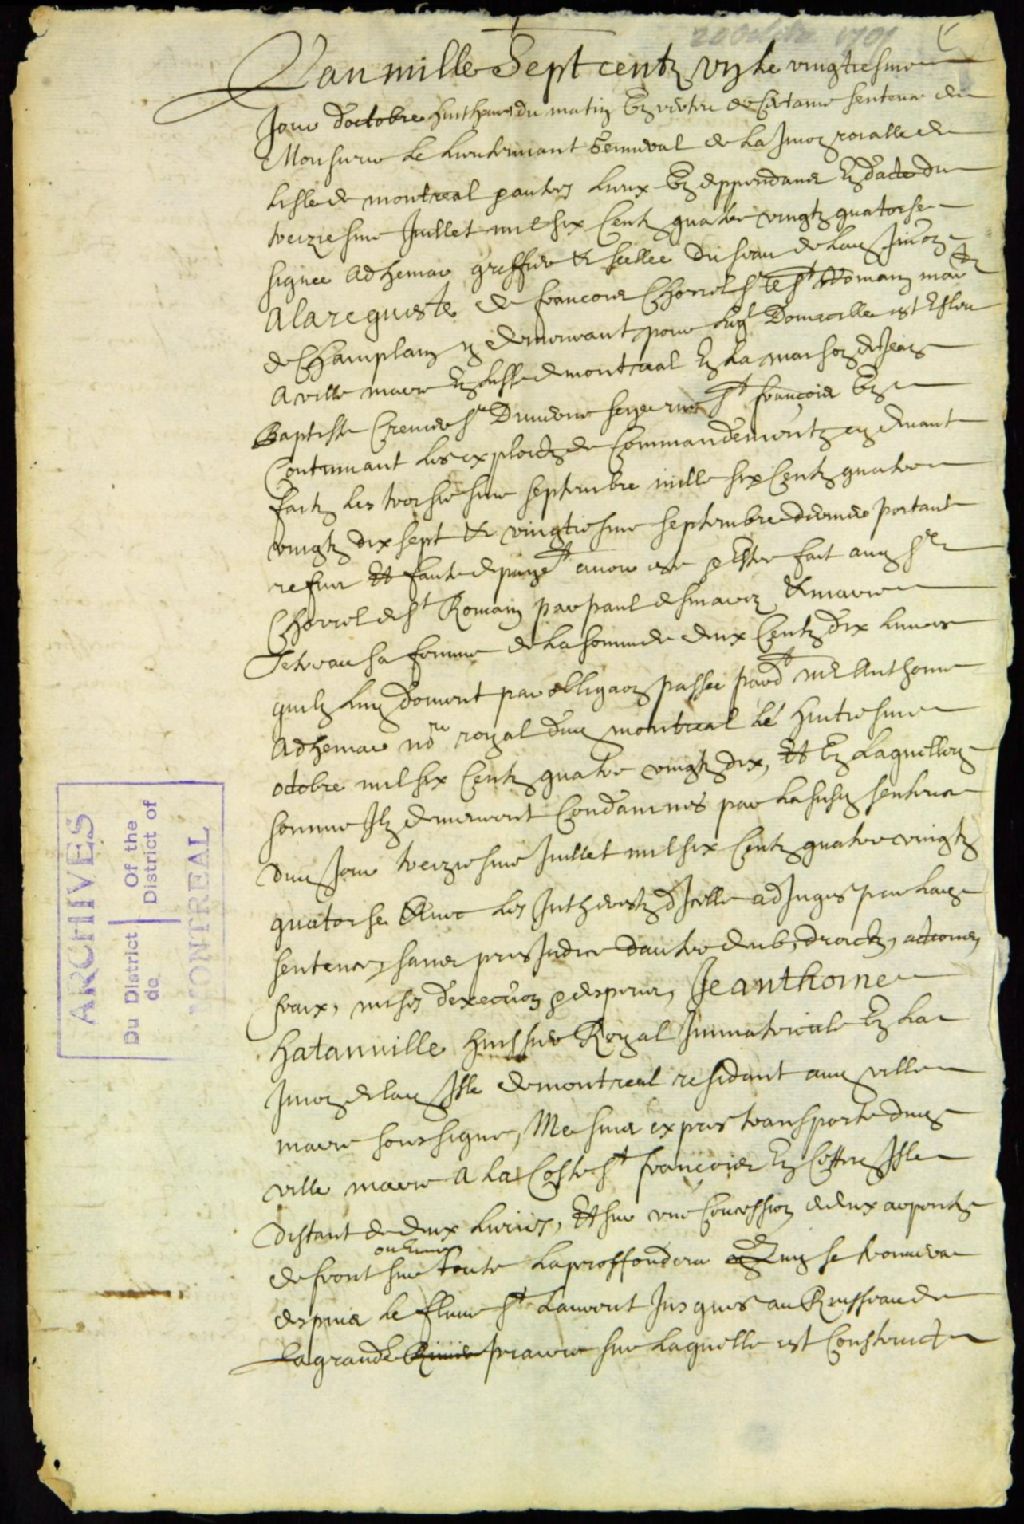 20 octobre 1701
L'an mille Sept centz un Le vingtiesme
Jour d'octobre huit heures du matin En vertu de Certaine sentence de
Monsieur Le Lieutenant General de La Jurion roialle de
Lisle de montreal & autres Lieux En deppendans En datte du
treiziesme Juillet mil six Centz quatre vingtz quatorse
signée Adhemar greffier & scellée Du sceau de lad Jurion
A la requeste de francois Chorel Sr de St Romain mard
de Champlain y demeurant pour leql Domicille est Esleu
A ville marie En Lisle de montreal En La maison de Jean
Baptiste Sr St françois En
Continuant Les exploictz de Commandementz cy devant
faictz Les troisiesme septembre mille six Centz quatre
vingtz dix sept & vingtiesme septembre dernier portant
reffus Et faute de payemt avoir esté & Estre fait aud Sr
Chorel de St Romain par paul desmaretz & marie
Tetreau sa femme de La somme de deux Centz dix Livres
quilz luy doivent par obligaon passée pardt Me Anthoine
Adhemar nore royal dud montreal Le huitiesme
octobre mil six Centz quatre vingtz dix, Et En Laquelle
somme Ilz demeurent Condamnés par La susd sentence
dud Jour treiziesme Juillet mil six Centz quatre vingtz
quatorse Avec Les Intherestz d'Icelle adjugés par lad
sentence, sans prejudice d'autre deub, droictz, actions,
fraix, mises d'execuon & despens, Je anthoine
hatanville huissier Royal Immatriculé En La
Jurion de lad Isle de montreal residant aud ville
marie soussigné, Me suis expres transporté dud
ville marie A La Coste St françois En Cette Isle
Distant de deux Lieues, Et sur une Concession de deux arpentz
de front sur toute La proffondeur qui se trouvera
ou Environ
depuis Le fleuve St Laurent Jusques au Ruisseau de
La grande Riviere prairie sur Laquelle est Construict
ARCHIVES
Du District Of the
de District of
MONTREAL